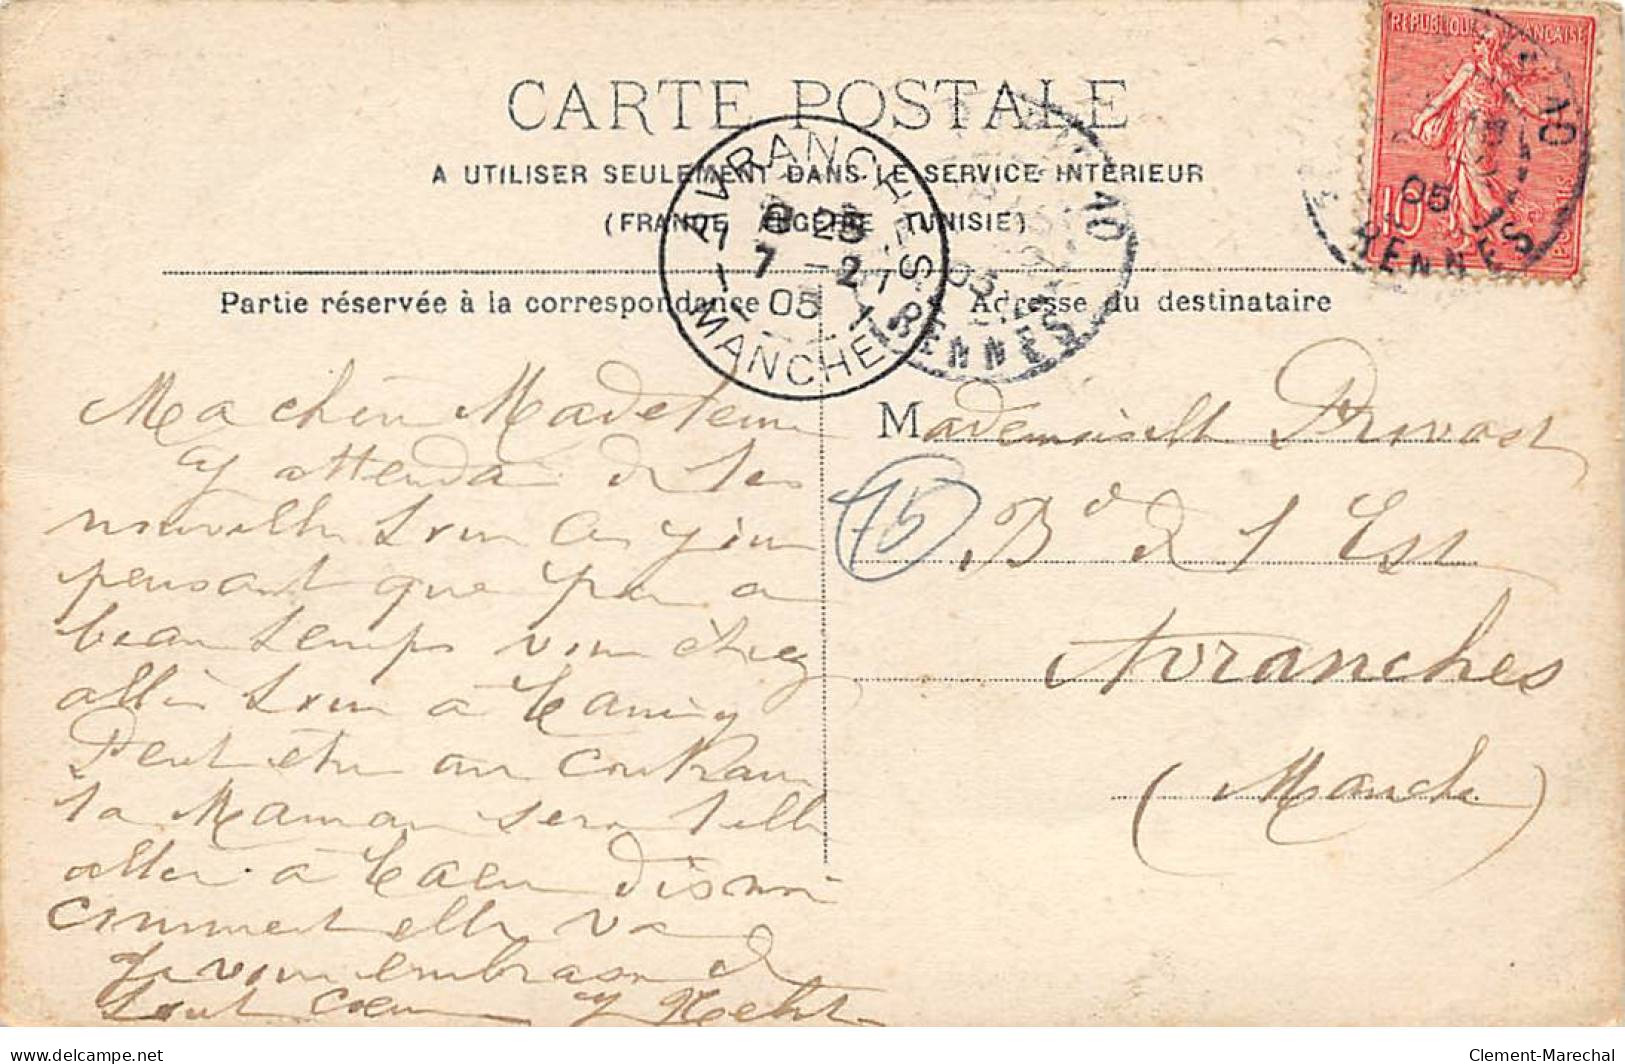 CARTE POSTALE
A UTILISER SEULEMENT DANS LE SERVICE INTÉRIEUR
(FRANCE ALGÉRIE TUNISIE)
REPUBLIQUE FRANÇAISE
10
POSTES
05
10
RENNES
AVRANCHES
8 25
7 -2
05
MANCHE
10
05
RENNES
Partie réservée à la correspondance
Adresse du destinataire
Ma chère Madeleine
J attendais de tes
nouvelles tous
pensant que par a
beau temps vous étiez
allés tous à
Peut être au contraire
ta Maman sera t elle
aller à Caen dis moi
comment elle va
Je vous embrasse de
tout cœur
Mademoiselle Provost
Bd de l Est
Avranches
(Manche)
15
delcampe.net
Clement-Marechal